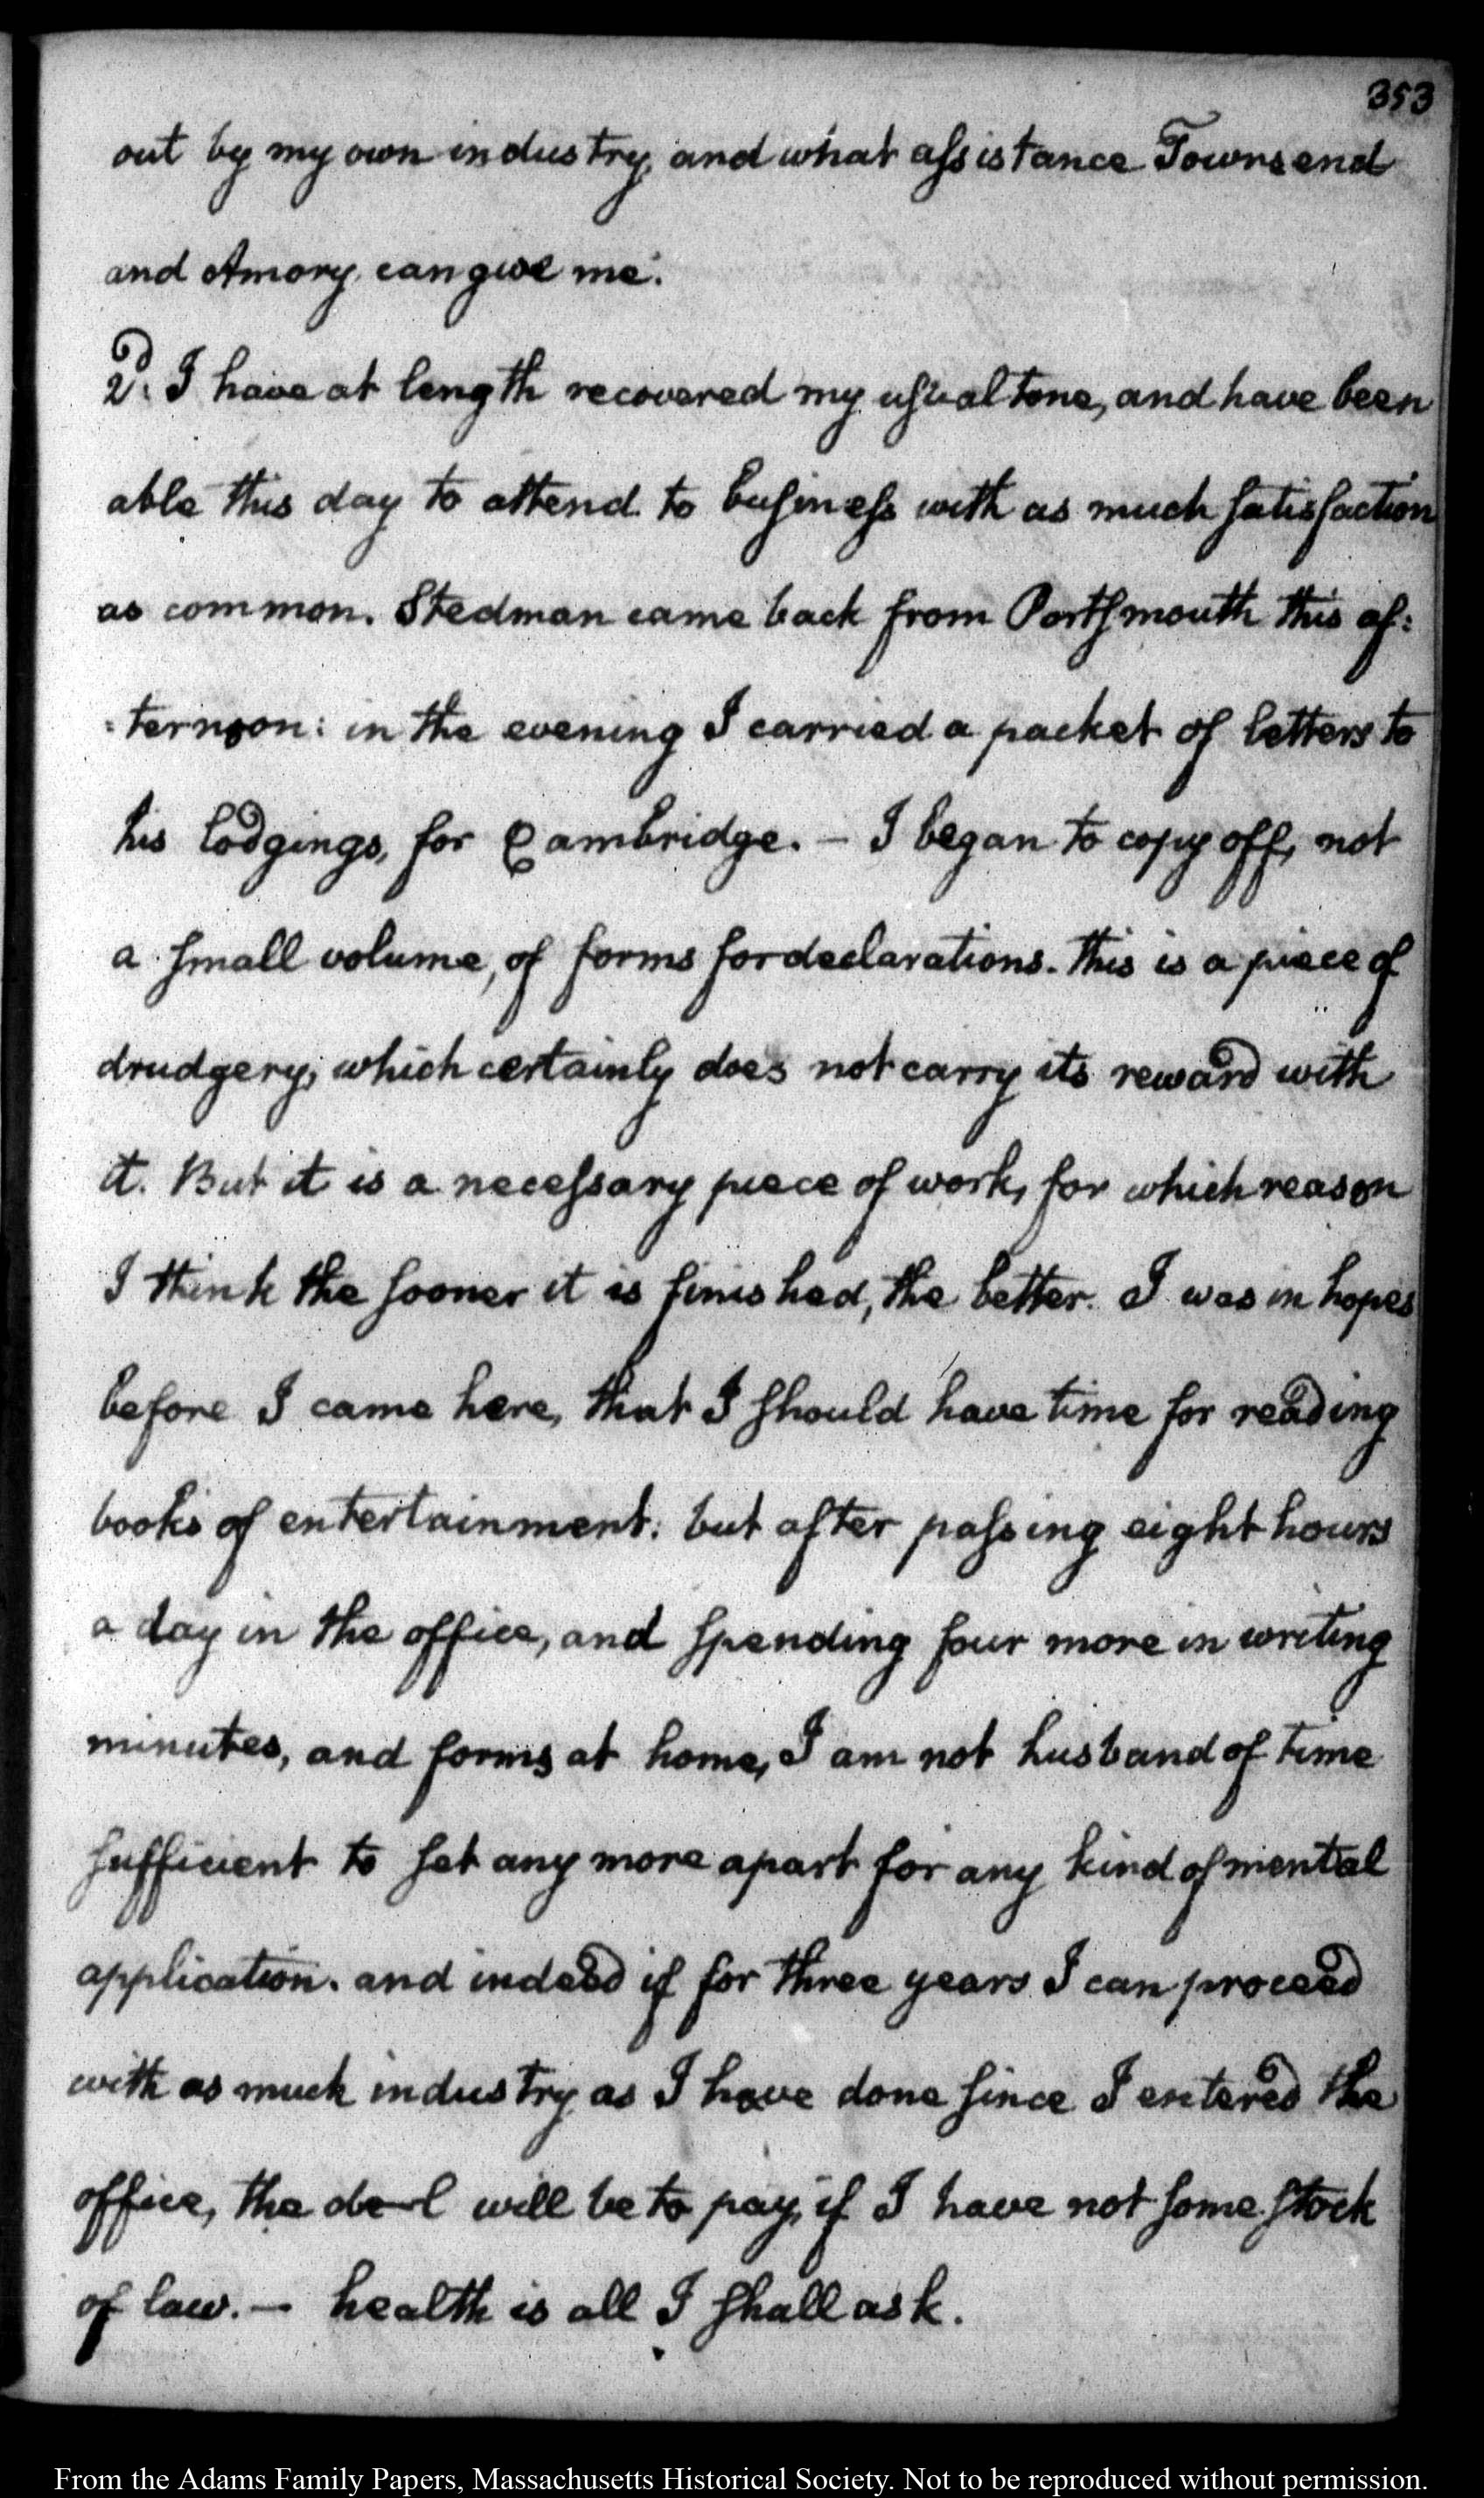 353
out by my own industry, and what assistance Townsend
and Amory can give me.
2d. I have at length recovered my usual tone, and have been
able this day to attend to business with as much satisfaction
as common. Stedman came back from Portsmouth this af:
:ternoon: in the evening I carried a packet of letters to
his lodgings, for Cambridge. — I began to copy off, not
a small volume, of forms for declarations. This is a piece of
drudgery, which certainly does not carry its reward with
it. But it is a necessary piece of work, for which reason
I think the sooner it is finished, the better. I was in hopes
before I came here, that I should have time for reading
books of entertainment: but after passing eight hours
a day in the office, and spending four more in writing
minutes, and forms at home, I am not husband of time
sufficient to set any more apart for any kind of mental
application. and indeed if for three years I can proceed
with as much industry as I have done since I entered the
office, the de—l will be to pay, if I have not some stock
of law. — health is all I shall ask.
From the Adams Family Papers, Massachusetts Historical Society. Not to be reproduced without permission.